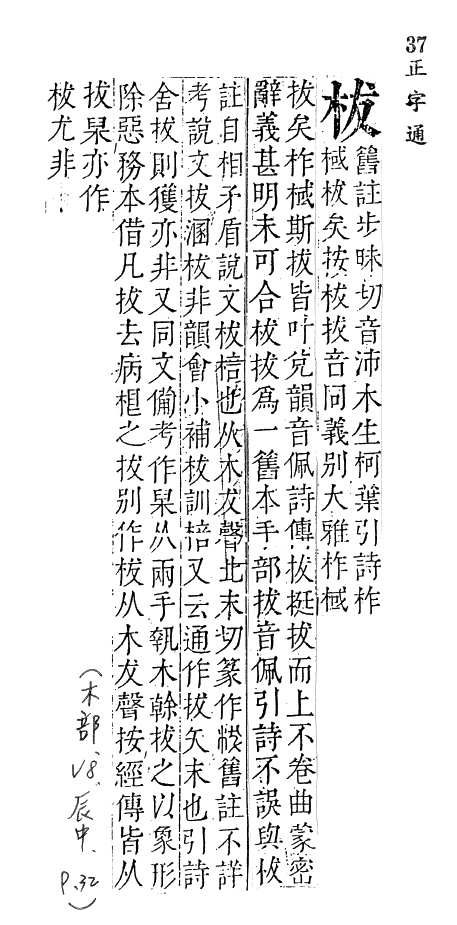 37正字通
栨
舊註步昧切音沛木生柯葉引詩柞
棫柭矣按柭拔音同義别大雅柞棫
拔矣柞棫斯拔皆叶兌韻音佩詩傳拔挺拔而上不卷曲蒙密
辭義甚明未可合柭拔爲一舊本手部拔音佩引詩不誤與柭
註自相矛盾說文柭棓也从木犮聲北末切篆作柭舊註不詳
考說文拔溷柭非韻會小補柭訓棓又云通作拔矢末也引詩
舍拔則獲亦非又同文備考作杲从兩手執木榦拔之以象形
除惡務本借凡拔去病根之拔别作柭从木犮聲按經傳皆从
拔杲亦作
柭尤非
（木部、V8、辰中、P.32）